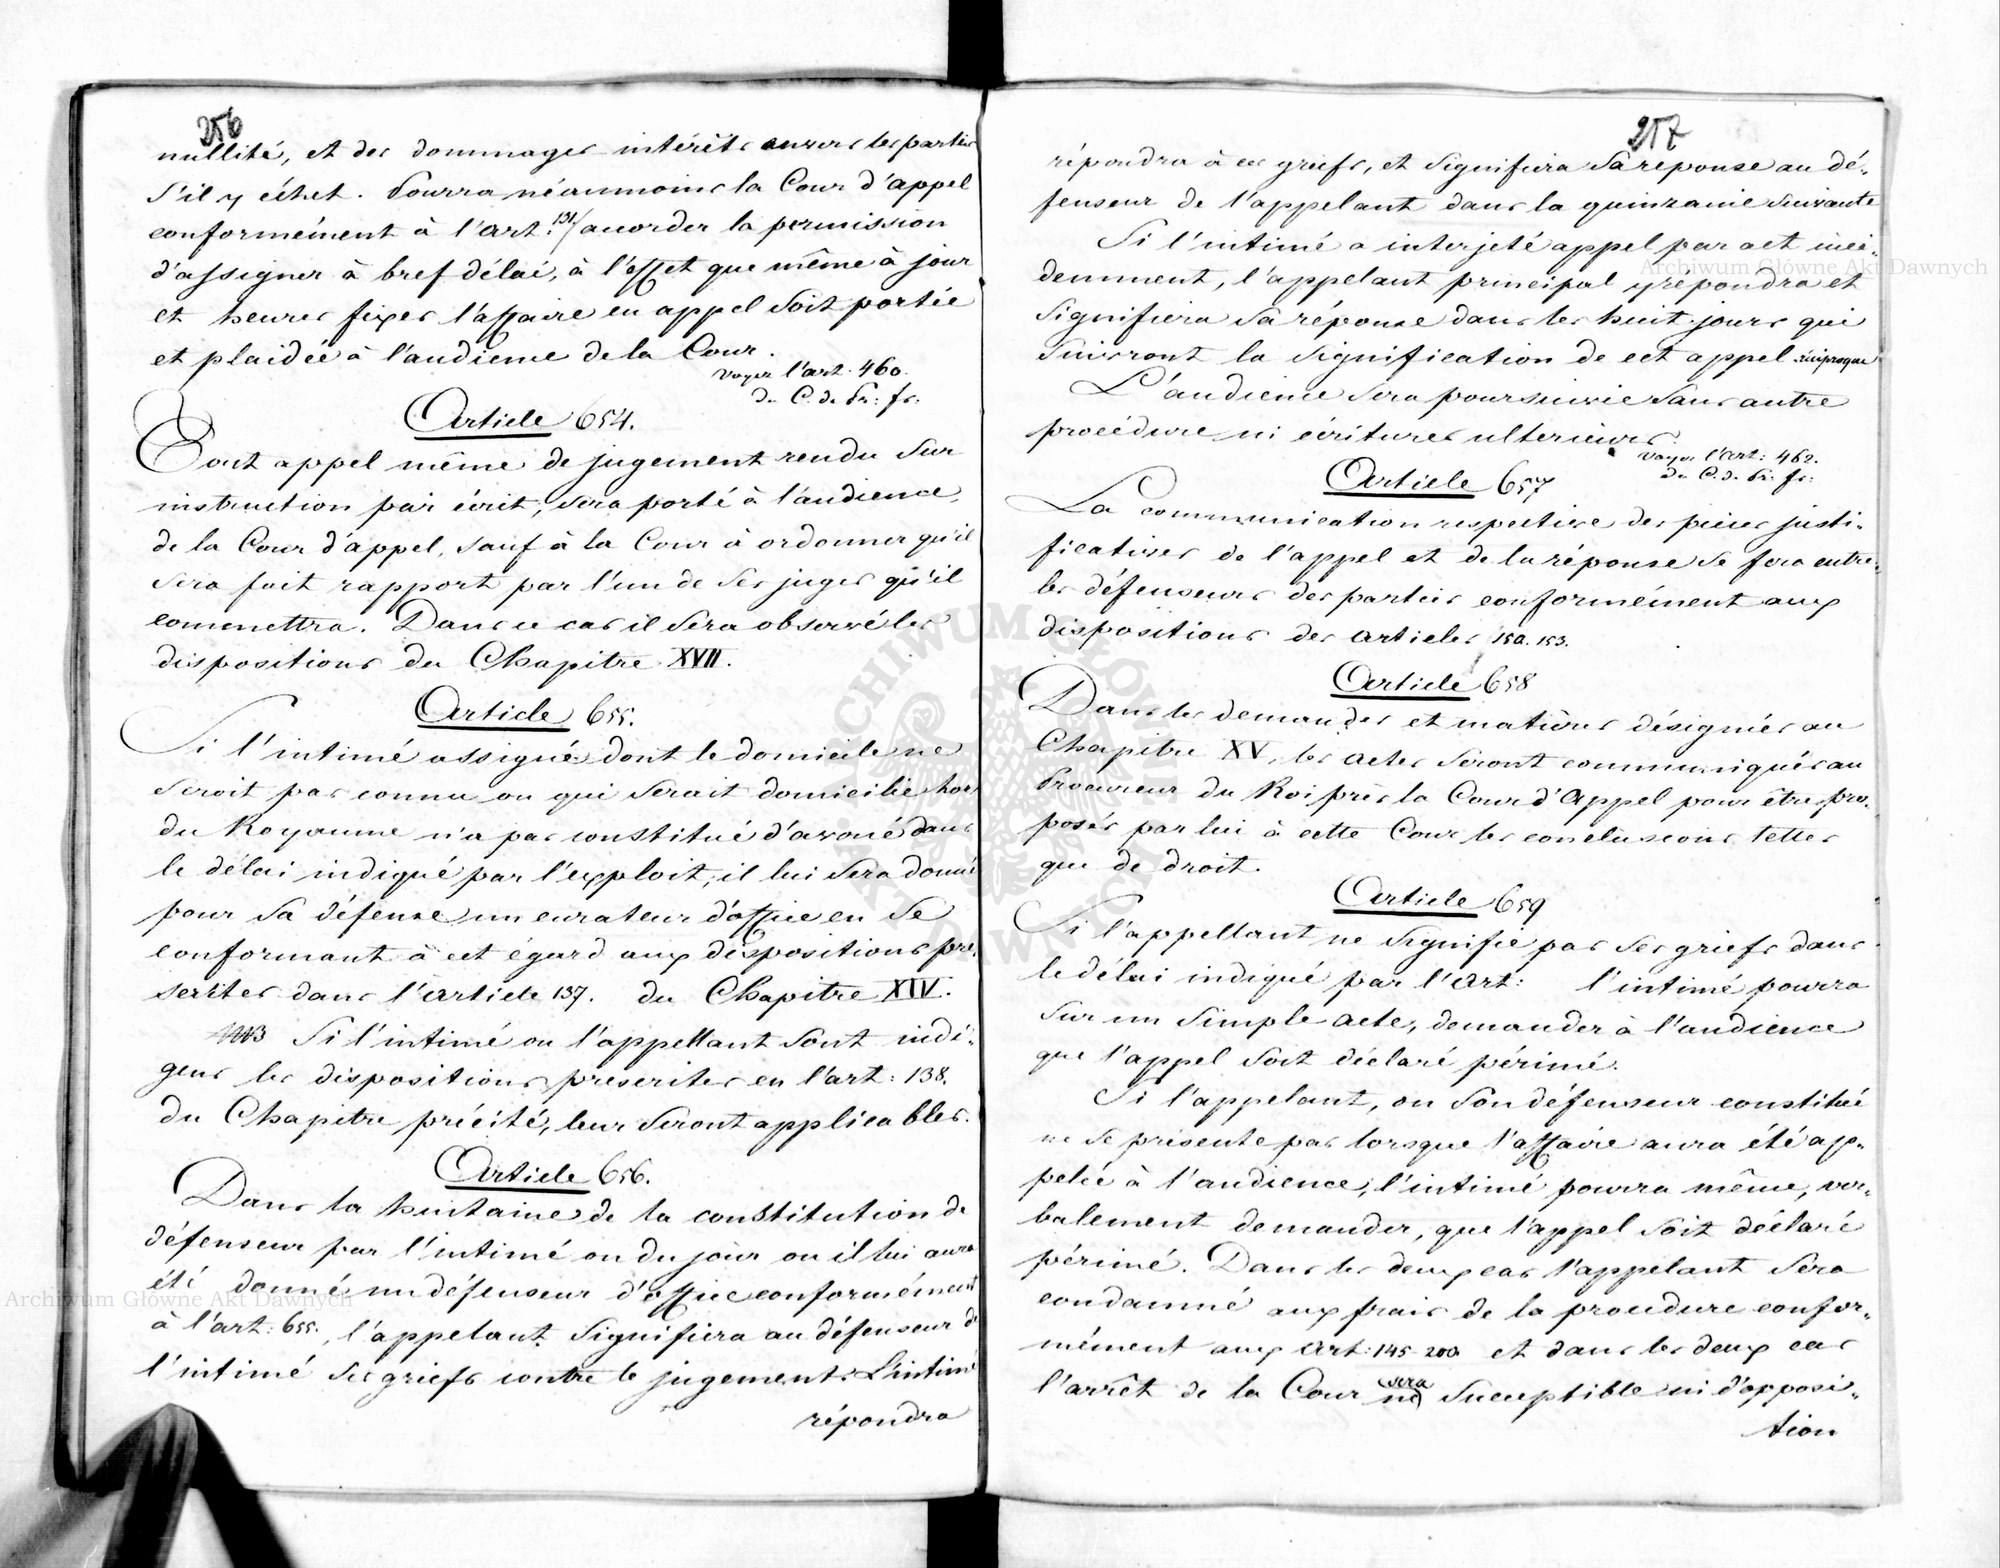 256
nullité, et des dommages intérêts envers les parties
s'il y échet. Pourra néanmoins la Cour d'appel
conformément à l'art: 131/ accorder la permission
d'assigner à bref délai, à l'effet que même à jour
et heures fixes l'affaire en appel soit portée
et plaidée à l'audience de la Cour.
voyez l'art. 460.
du C. de Pr: fr:
Article 654.
Tout appel même de jugement rendu sur
instruction par écrit, sera porté à l'audience,
de la Cour d'appel, sauf à la Cour à ordonner qu'il
sera fait rapport par l'un de ses juges qu'il
commettra. Dans ce cas il sera observé les
dispositions du Chapitre XVII.
Article 655.
Si l'intimé assigné dont le domicile ne
seroit pas connu ou qui serait domicilié hors
du Royaume n'a pas constitué d'avoué dans
le délai indiqué par l'exploit, il lui sera donné
pour sa défense un curateur d'office en se
conformant à cet égard aux dispositions pre-
scrites dans l'article 137. du Chapitre XIV.
Si l'intimé ou l'appellant sont indi-
gens les dispositions prescrites en l'art: 138.
du Chapitre précité, leur seront applicables.
Article 656.
Dans la huitaine de la constitution de
défenseur par l'intimé ou du jour ou il lui aura
été donné un défenseur d'office conformément
à l'art: 655. l'appelant signifiera au défenseur de
l'intimé ses griefs contre le jugement. L'intimé
répondra
257
répondra à ces griefs, et signifiera sa reponse au dé-
fenseur de l'appelant dans la quinzaine suivante
Si l'intimé a interjeté appel par act inci-
demment, l'appelant principal y répondra et
signifiera sa réponse dans les huit jours qui
suivront la signification de cet appel réciproque
L'audience sera poursuivie sans autre
procédure ni écritures ulterieures.
voyez l'art: 462.
du C. de Pr: fr:
Article 657
La communication respective des pièces justi-
ficatives de l'appel et de la réponse se fera entre
les défenseurs des parties conformément aux
dispositions des articles 150. 153.
Article 658
Dans les demandes et matières désignées au
Chapitre XV, les actes seront communiqués au
Procureur du Roi près la Cour d'Appel pour être pro-
posés par lui à cette Cour les conclusions telles
que de droit.
Article 659
Si l'appellant ne signifie pas ses griefs dans
le délai indiqué par l'Art: l'intimé pourra
sur un simple acte, demander à l'audience
que l'appel soit déclaré périmé.
Si l'appelant, ou son défenseur constitué
ne se présente pas lorsque l'affaire aura été ap-
pelée à l'audience, l'intimé pourra même, ver-
balement demander, que l'appel soit déclaré
périmé. Dans les deux cas l'appelant sera
condamné aux frais de la procedure confor-
mément aux Art: 145 200 et dans les deux cas
l'arrêt de la Cour ne sera susceptible ni d'opposi-
tion